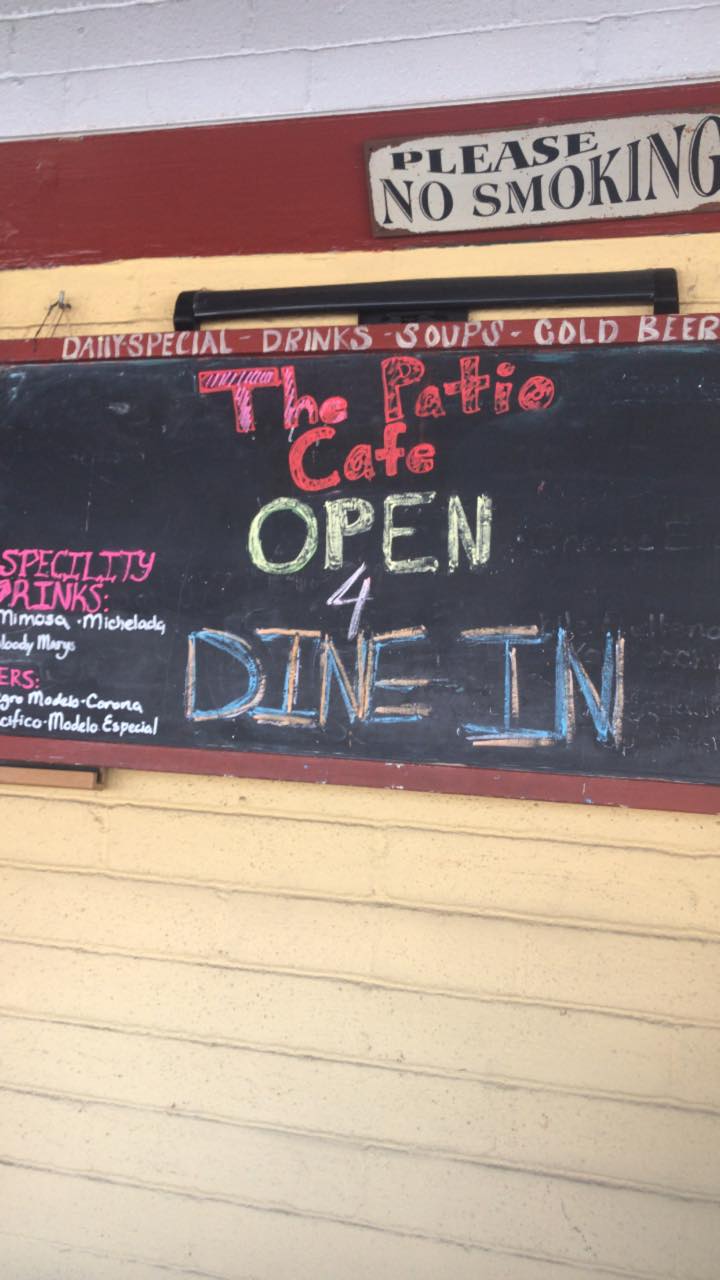 PLEASE
NO SMOKING
DAILY-SPECIAL - DRINKS - SOUPS - COLD BEER
The Patio
Cafe
OPEN
4
DINE IN
SPECILITY
DRINKS:
Mimosa · Michelada
loody Marys
ERS:
gro Modelo - Corona
cifico - Modelo Especial